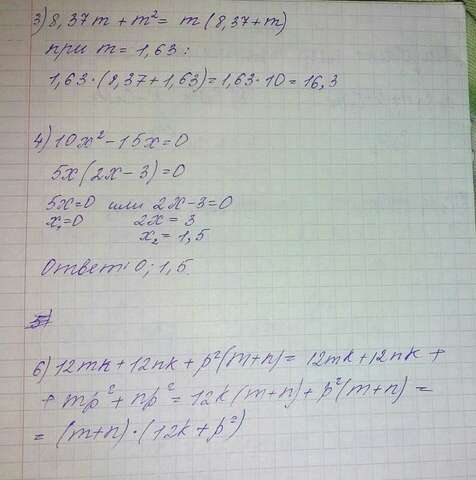 3) 8,37m + m² = m(8,37+m)
при m = 1,63:
1,63·(8,37+1,63) = 1,63·10 = 16,3
4) 10x² - 15x = 0
5x(2x - 3) = 0
5x = 0 или 2x - 3 = 0
x₁ = 0 2x = 3
x₂ = 1,5
Ответ: 0; 1,5.
5)
6) 12mk + 12nk + p²(m+n) = 12mk + 12nk +
+ mp² + np² = 12k(m+n) + p²(m+n) =
= (m+n)·(12k+p²)